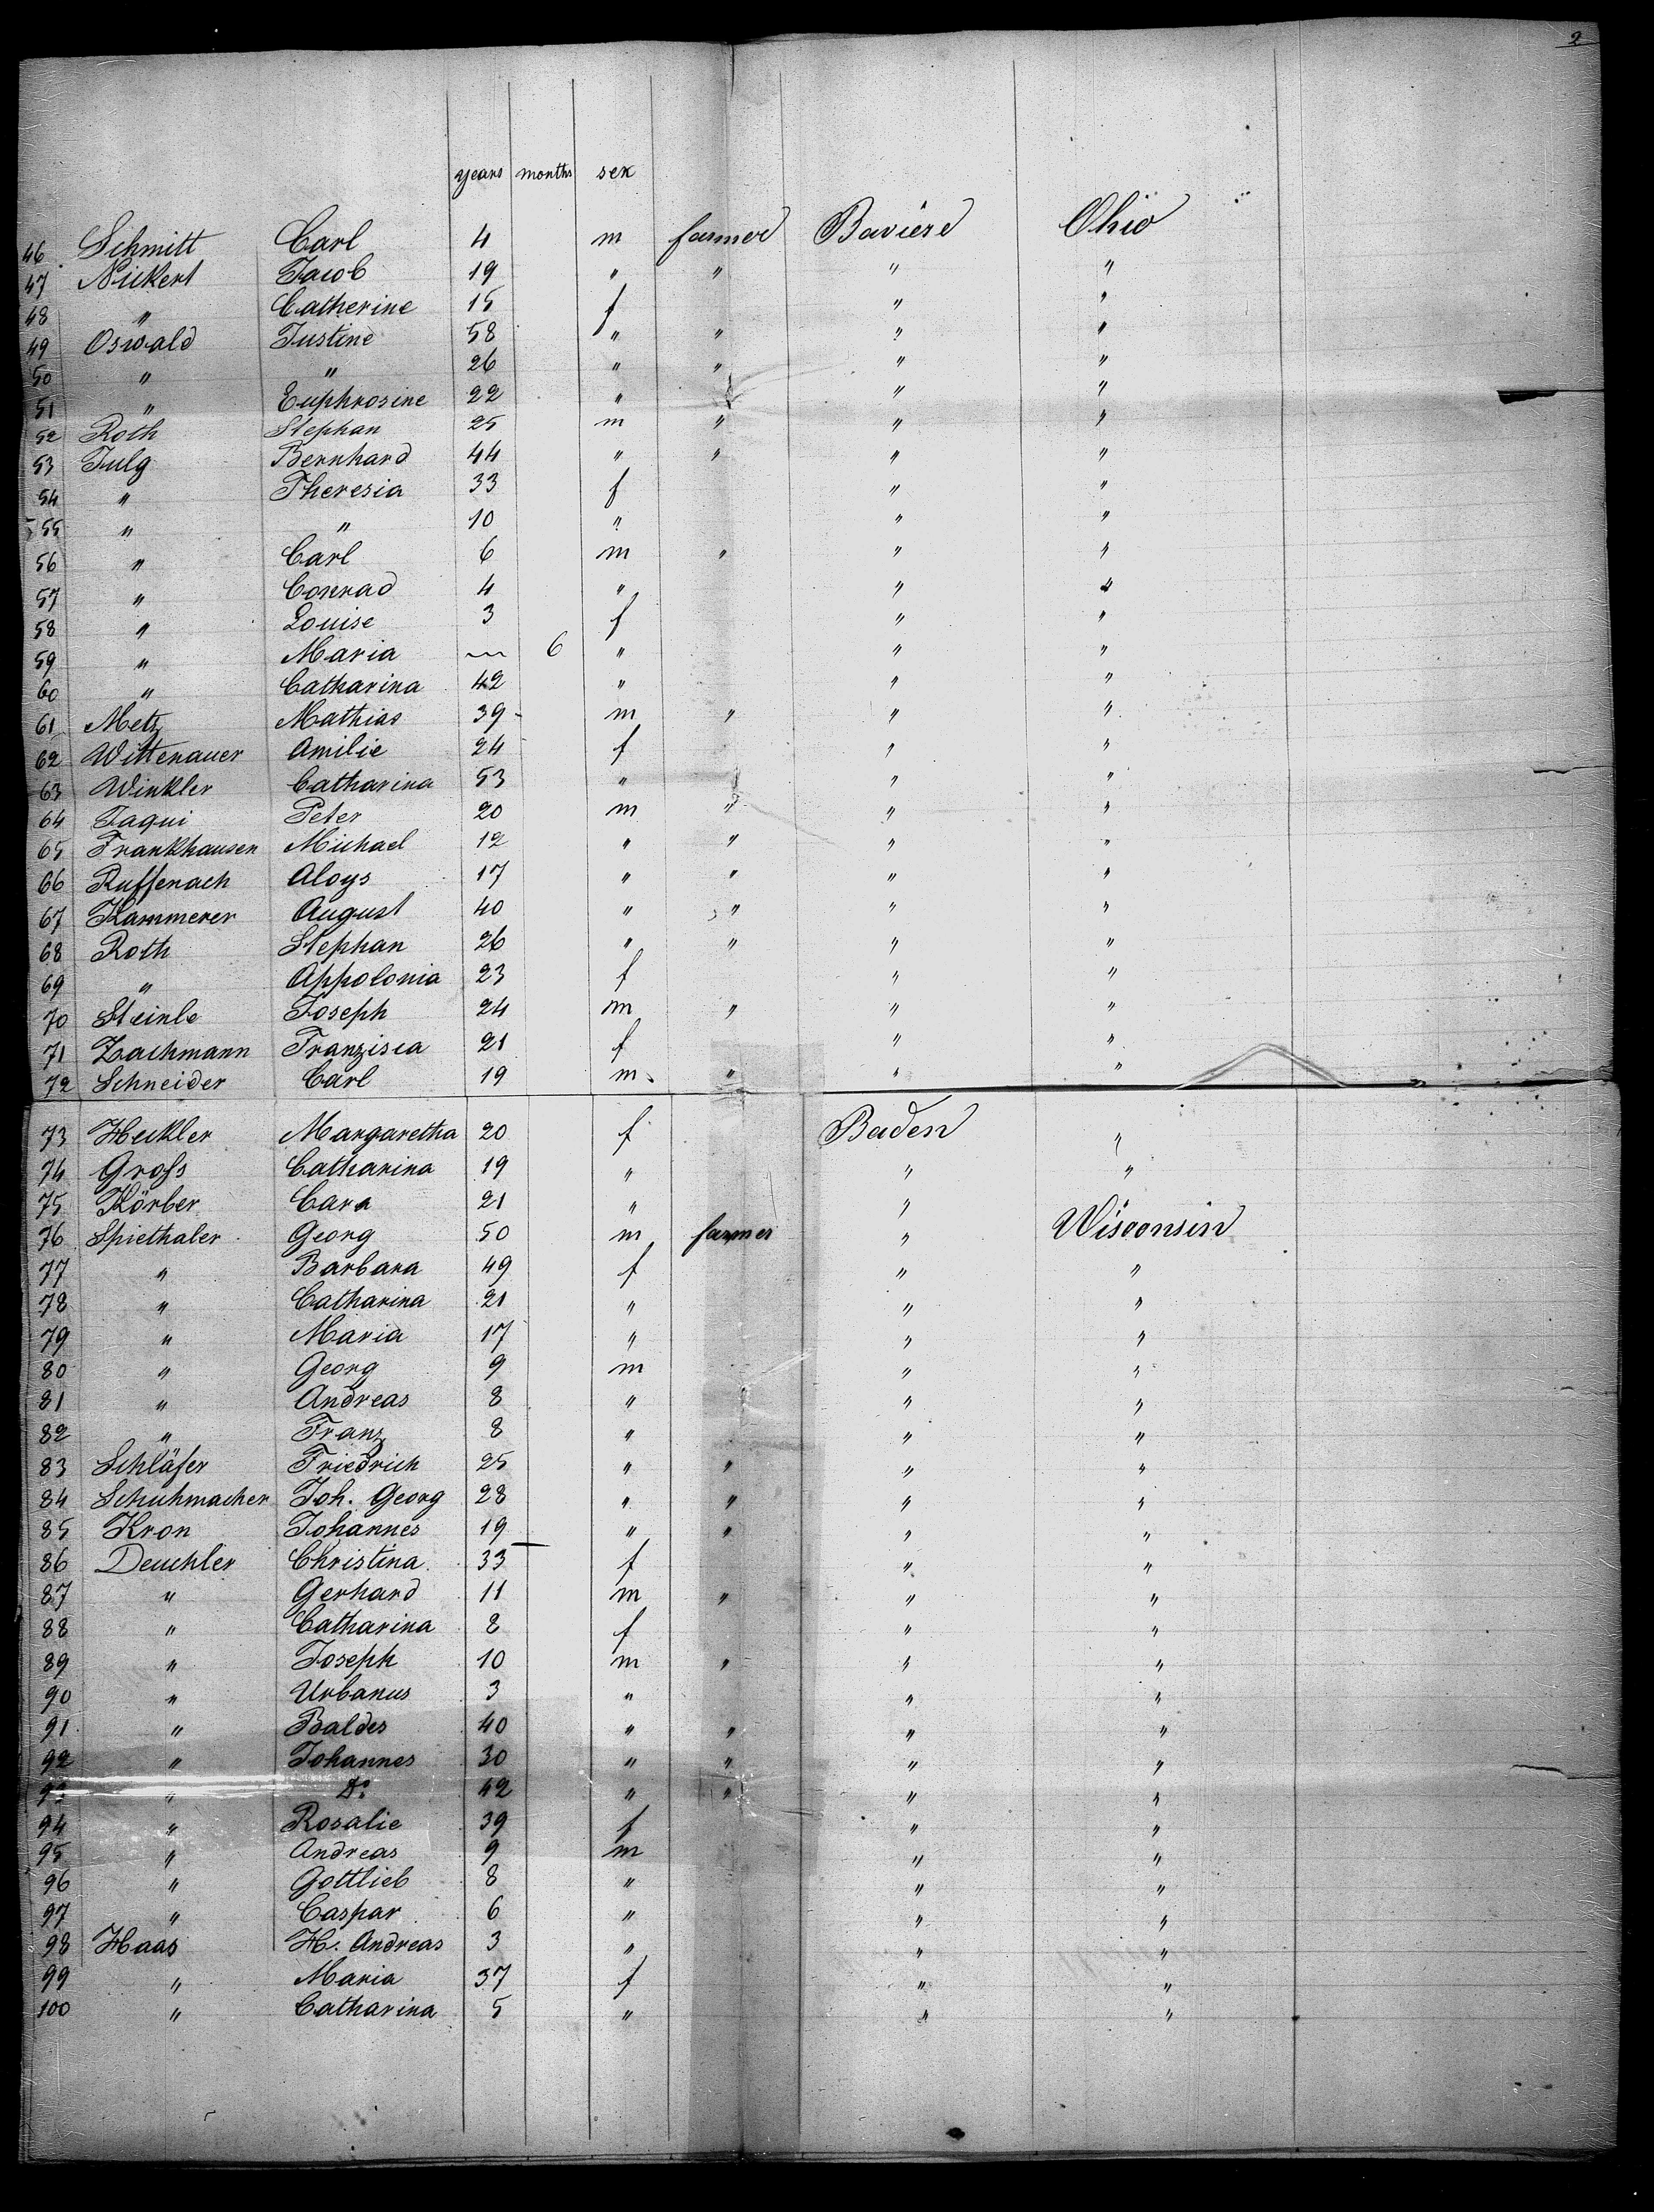 2
years months sex
46 Schmitt Carl 4 m farmer Bavière Ohio
47 Nickert Jacob 19 " " " "
48 " Catherine 15 f " "
49 Oswald Justine 58 " " " "
50 " " 26 " " " "
51 " Euphrosine 22 " " "
52 Roth Stephan 25 m " " "
53 Julg Bernhard 44 " " " "
54 " Theresia 33 f " "
55 " " 10 " " "
56 " Carl 6 m " " "
57 " Conrad 4 " " "
58 " Louise 3 f " "
59 " Maria — 6 " " "
60 " Catharina 42 " " "
61 Metz Mathias 39 m " " "
62 Wittenauer Amilie 24 f " "
63 Winkler Catharina 53 " " "
64 Jaqui Peter 20 m " " "
65 Frankhausen Michael 12 " " " "
66 Ruffenach Aloys 17 " " " "
67 Kammerer August 40 " " " "
68 Roth Stephan 26 " " " "
69 " Appolonia 23 f " "
70 Steinle Joseph 24 m " " "
71 Zachmann Franzisca 21 f " "
72 Schneider Carl 19 m " " "
73 Heckler Margaretha 20 f Baden "
74 Groſs Catharina 19 " " "
75 Körber Cara 21 " "
76 Spiethaler Georg 50 m farmer " Wisconsin
77 " Barbara 49 f " "
78 " Catharina 21 " " "
79 " Maria 17 " " "
80 " Georg 9 m " "
81 " Andreas 8 " " "
82 " Franz 8 " " "
83 Schläfer Friedrich 25 " " " "
84 Schuhmacher Joh. Georg 28 " " " "
85 Kron Johannes 19 " " " "
86 Deuchler Christina 33 f " "
87 " Gerhard 11 m " " "
88 " Catharina 8 f " "
89 " Joseph 10 m " " "
90 " Urbanus 3 " " "
91 " Baldes 40 " " " "
92 " Johannes 30 " " " "
93 " Do 42 " " " "
94 " Rosalie 39 f " "
95 " Andreas 9 m " "
96 " Gottlieb 8 " " "
97 " Caspar 6 " " "
98 Haas H. Andreas 3 " " "
99 " Maria 37 f " "
100 " Catharina 5 " " "